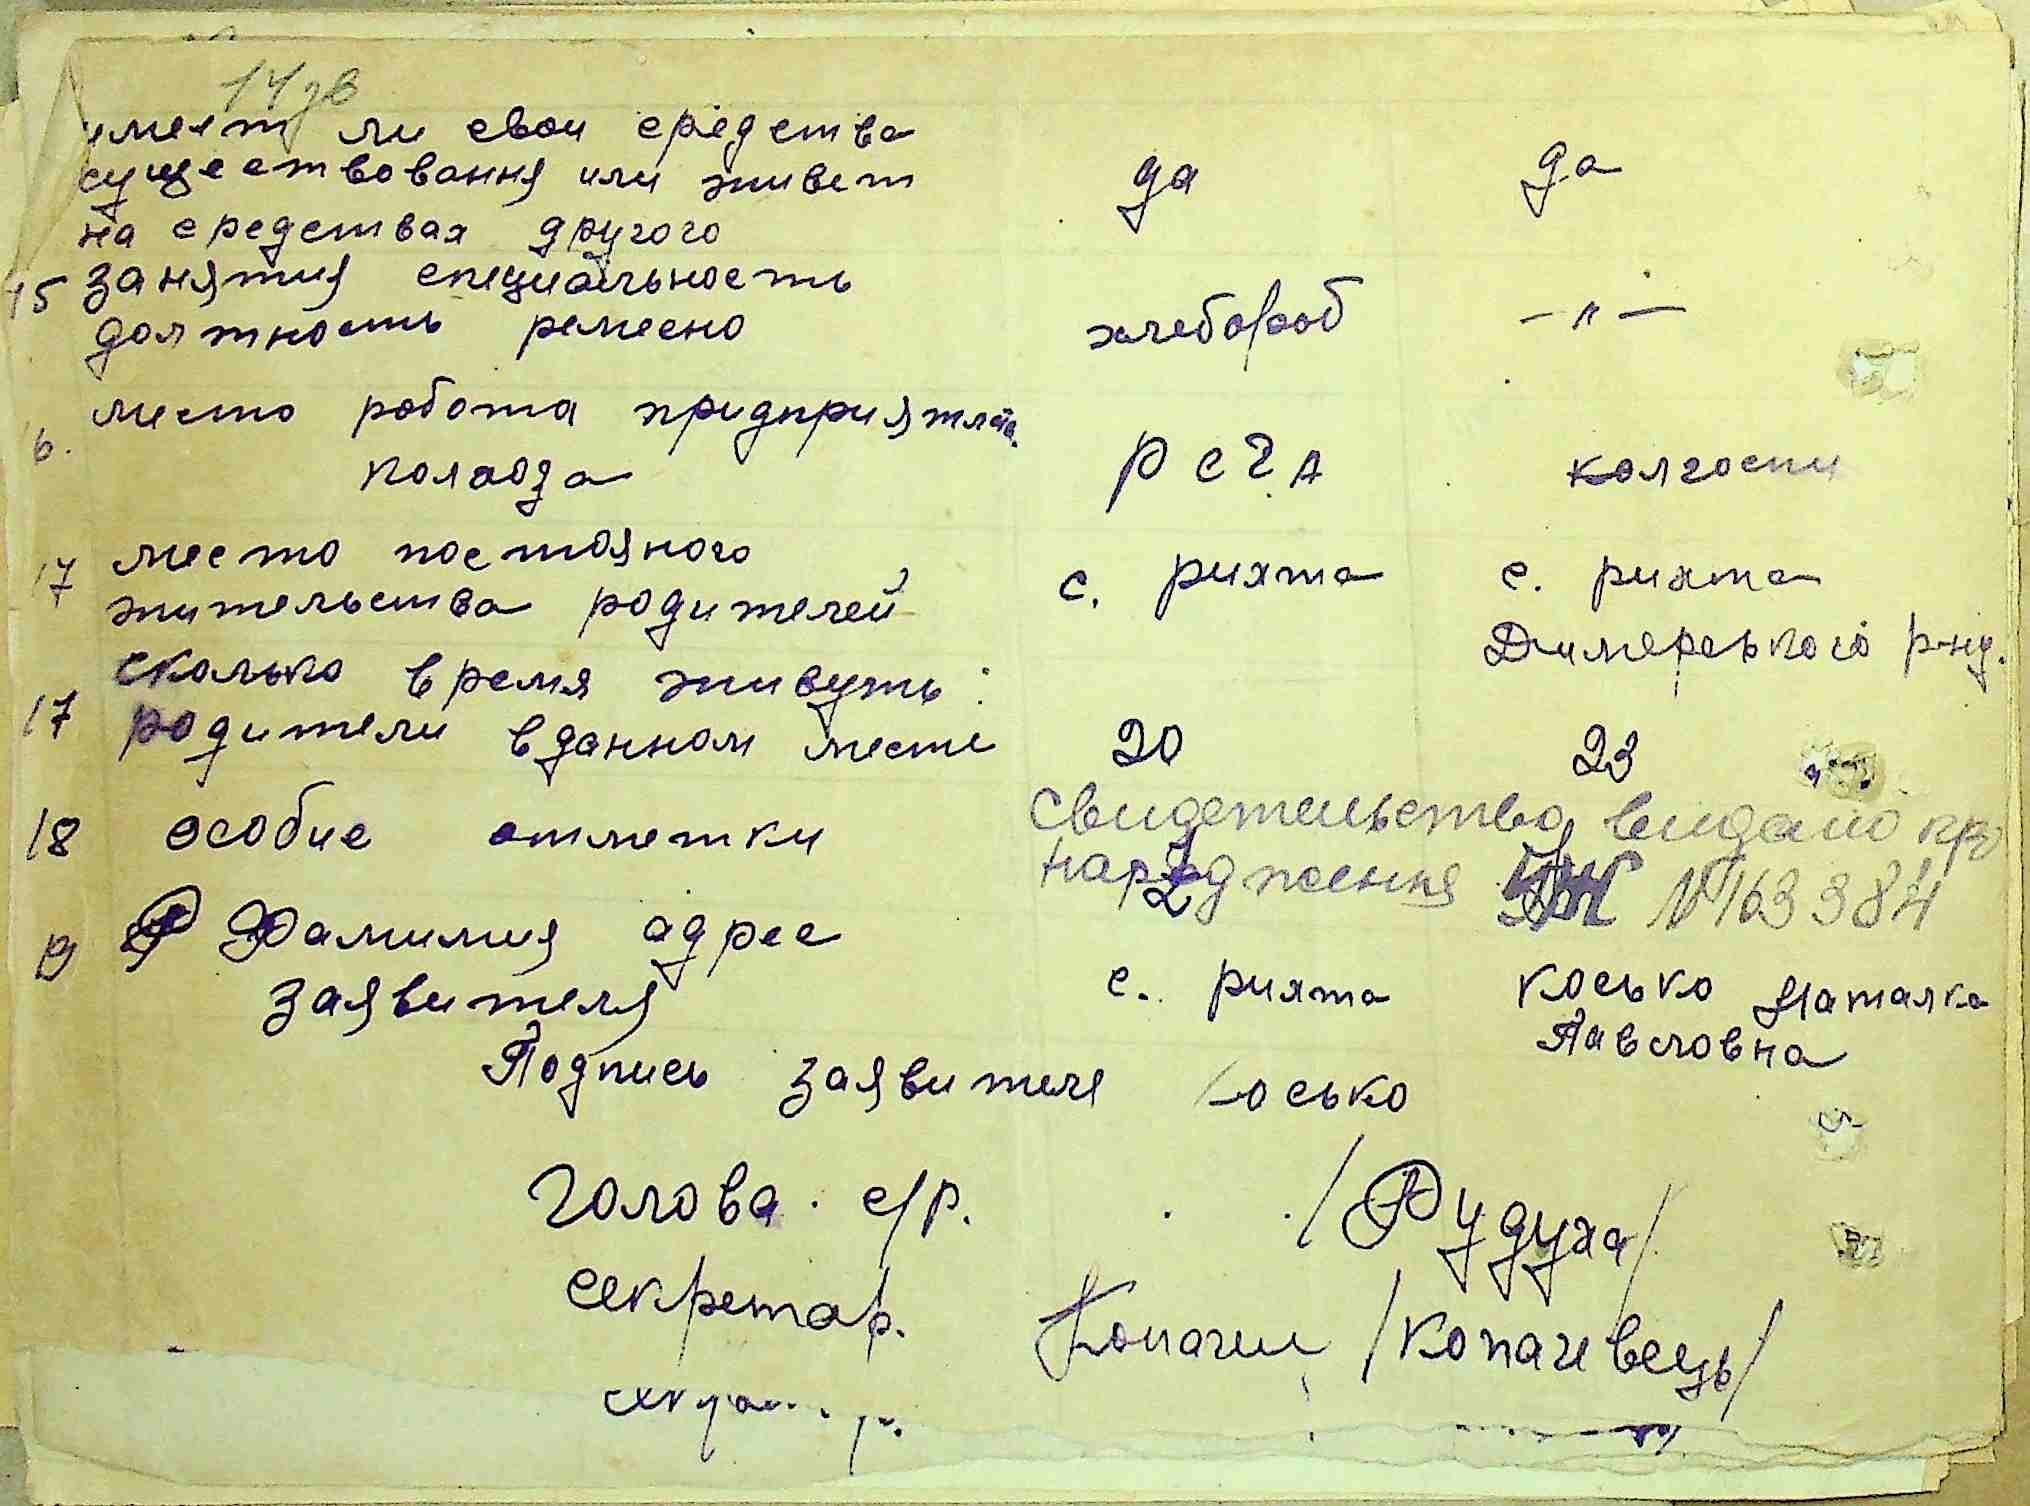 14зв
имеет ли свои средства
существования или живет да да
на средствах другого
15 занятия специальность
должность ремесно хлебороб — „ —
16. место робота предприятия
колхоза Р С Ч А колгоспи
17 место постояного
жительства родителей с. рихта с. рихта
Димерського р-ну.
сколько время живуть
17 родители в данном месте 20 23
18 особие отметки Свидетельство видано про
народження № 163384
19 Фамилия адрес
заявителя с. рихта Косько Наталка
Павловна
Подпись заявителя Косько
Голова с/р. /Рудуха/
секретар. Копачев /Копачевець/